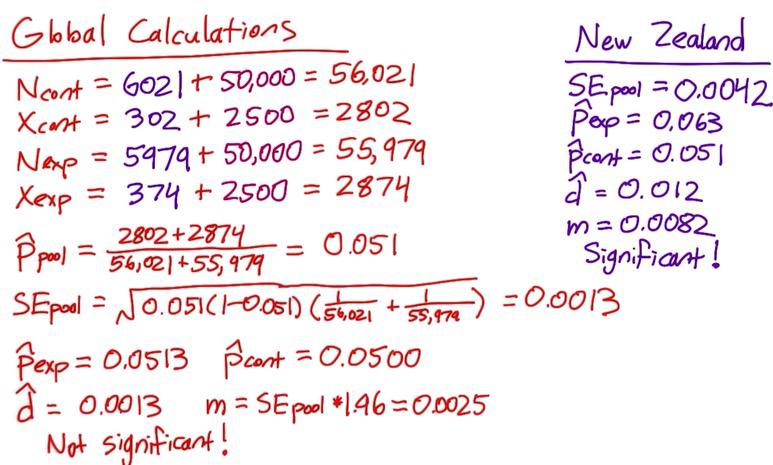 Global Calculations
Ncont = 6021 + 50,000 = 56,021
Xcont = 302 + 2500 = 2802
Nexp = 5979 + 50,000 = 55,979
Xexp = 374 + 2500 = 2874
p̂pool = (2802+2874)/(56,021+55,979) = 0.051
SEpool = √(0.051(1-0.051)(1/56,021 + 1/55,979)) = 0.0013
p̂exp = 0.0513 p̂cont = 0.0500
d̂ = 0.0013 m = SEpool * 1.96 = 0.0025
Not significant!
New Zealand
SEpool = 0.0042
p̂exp = 0.063
p̂cont = 0.051
d̂ = 0.012
m = 0.0082
Significant!